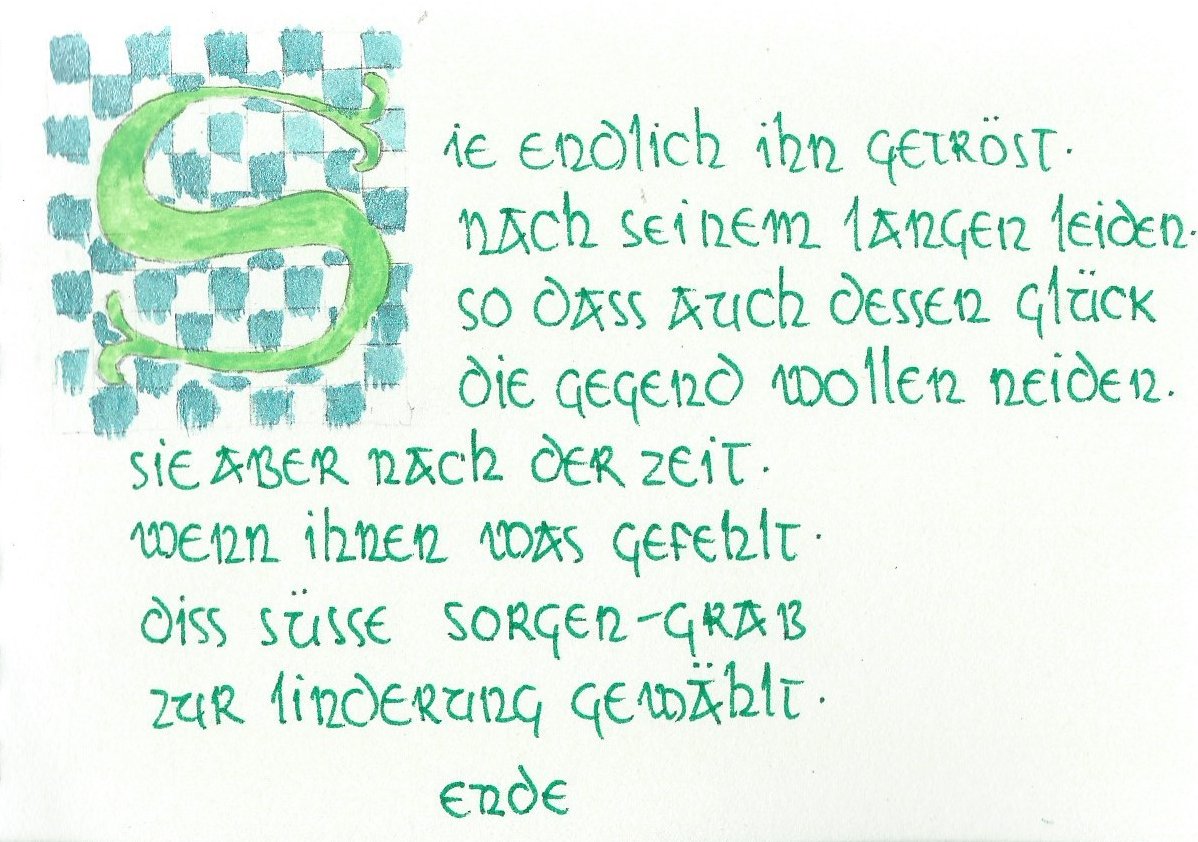 Sie endlich ihn getröst.
nach seinem langen leiden.
so dass auch dessen glück
die gegend wollen neiden.
sie aber nach der zeit.
wenn ihnen was gefehlt.
diss süsse sorgen-grab
zur linderung gewählt.
ende